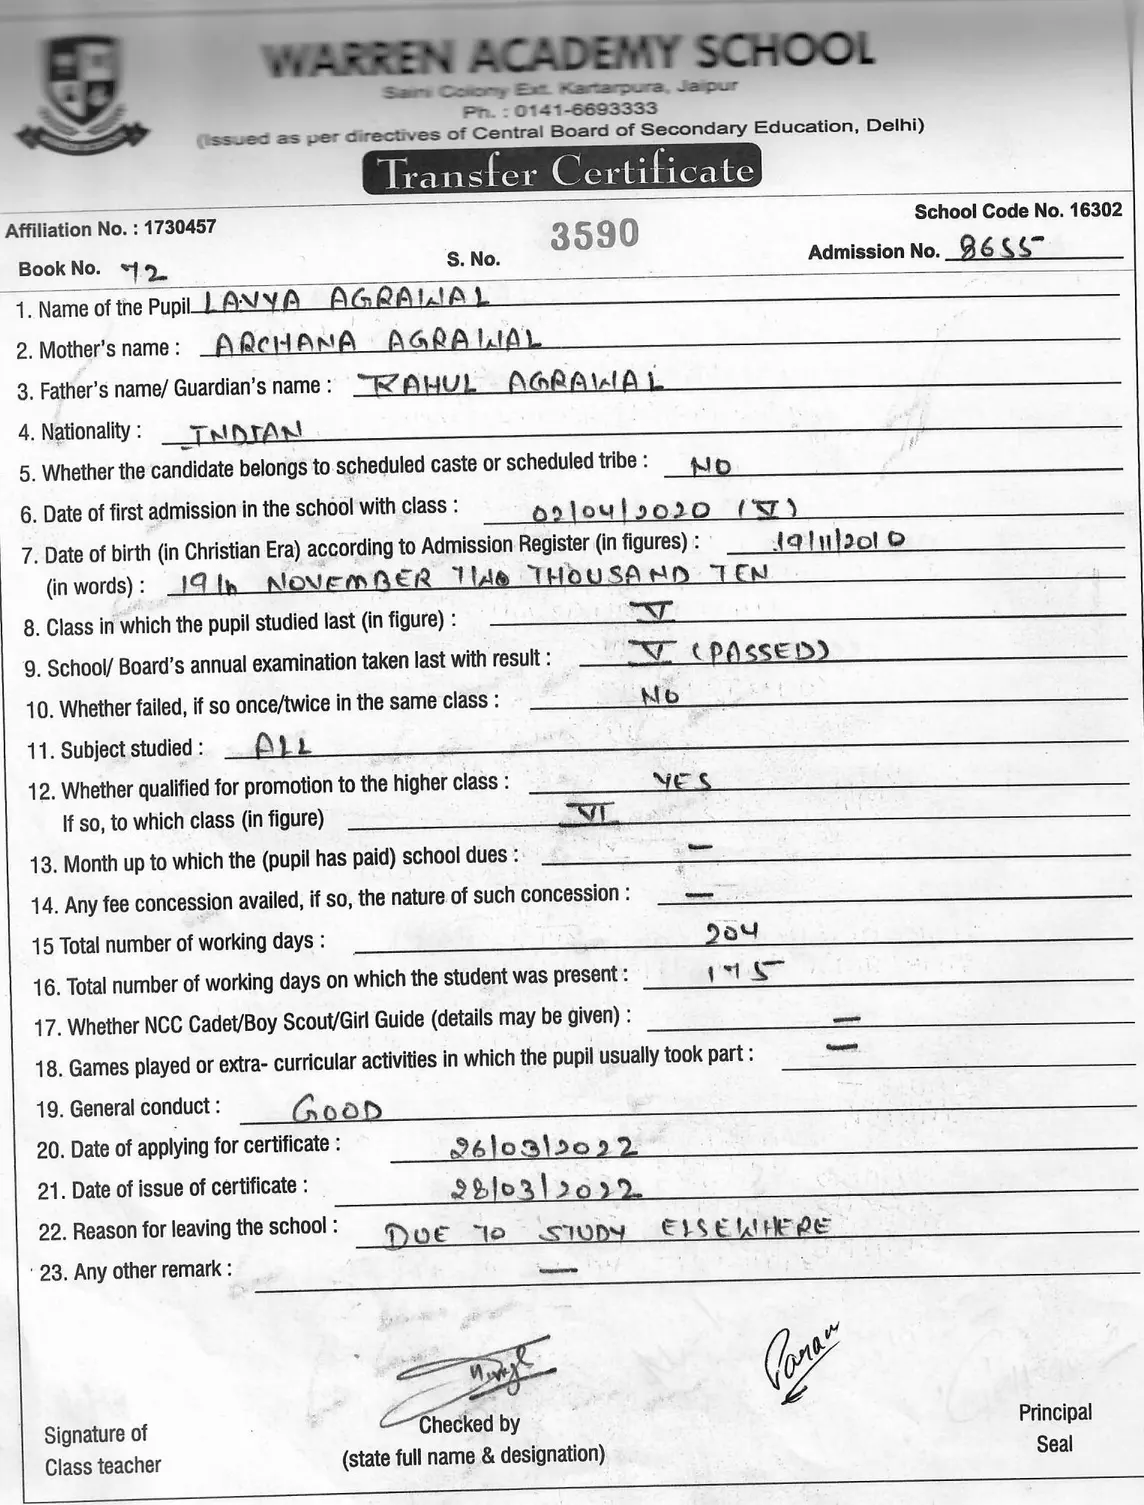 WARREN ACADEMY SCHOOL
Saini Colony Ext. Kartarpura, Jaipur
Ph. : 0141-6693333
(Issued as per directives of Central Board of Secondary Education, Delhi)
Transfer Certificate
Affiliation No. : 1730457
School Code No. 16302
Book No. 72
S. No. 3590
Admission No. 8655
1. Name of the Pupil LAVYA AGRAWAL
2. Mother's name : ARCHANA AGRAWAL
3. Father's name/ Guardian's name : RAHUL AGRAWAL
4. Nationality : INDIAN
5. Whether the candidate belongs to scheduled caste or scheduled tribe : NO
6. Date of first admission in the school with class : 02/04/2020 (V)
7. Date of birth (in Christian Era) according to Admission Register (in figures) : 19/11/2010
(in words) : 19th NOVEMBER TWO THOUSAND TEN
8. Class in which the pupil studied last (in figure) : V
9. School/ Board's annual examination taken last with result : V (PASSED)
10. Whether failed, if so once/twice in the same class : NO
11. Subject studied : ALL
12. Whether qualified for promotion to the higher class : YES
If so, to which class (in figure) VI
13. Month up to which the (pupil has paid) school dues : —
14. Any fee concession availed, if so, the nature of such concession : —
15 Total number of working days : 204
16. Total number of working days on which the student was present : 175
17. Whether NCC Cadet/Boy Scout/Girl Guide (details may be given) : —
18. Games played or extra- curricular activities in which the pupil usually took part : —
19. General conduct : GOOD
20. Date of applying for certificate : 26/03/2022
21. Date of issue of certificate : 28/03/2022
22. Reason for leaving the school : DUE TO STUDY ELSEWHERE
23. Any other remark : —
Signature of
Class teacher
Checked by
(state full name & designation)
Principal
Seal